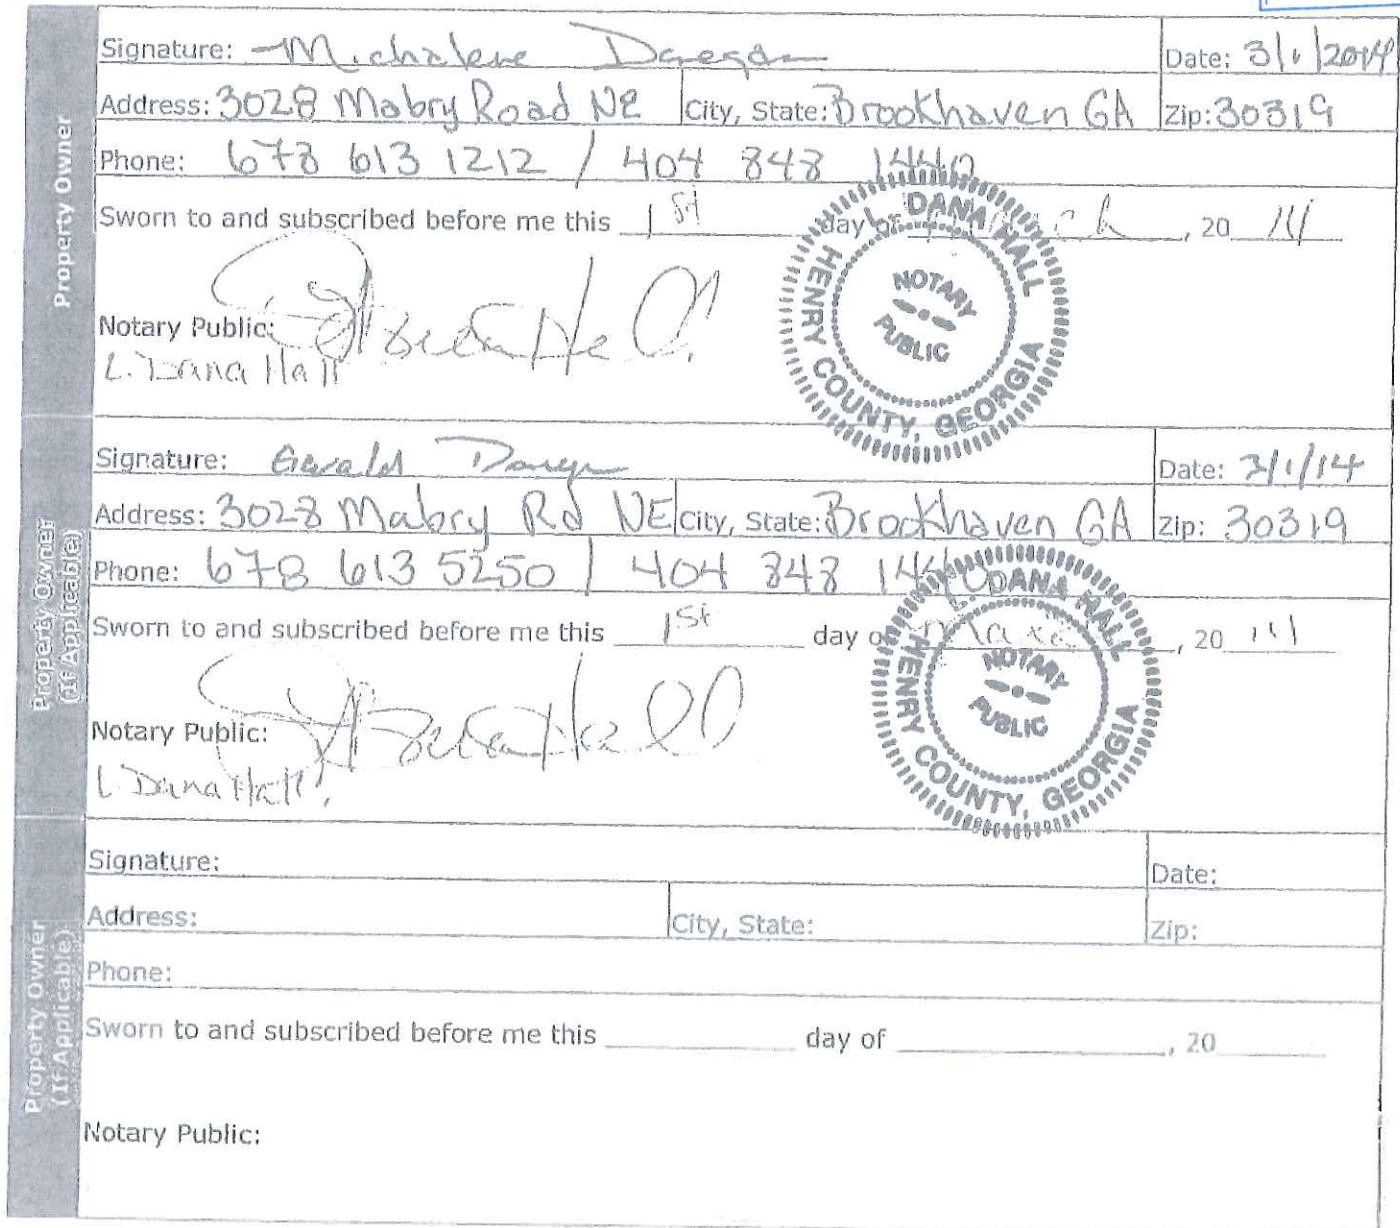 Property Owner
Signature: Michalene Daregan Date: 3/1/2014
Address: 3028 Mabry Road NE City, State: Brookhaven GA Zip: 30319
Phone: 678 613 1212 / 404 848 1440
Sworn to and subscribed before me this 1st day of March, 20 14
Notary Public:
L. Dana Hall
L. DANA HALL
NOTARY
PUBLIC
HENRY COUNTY, GEORGIA
Property Owner
(If Applicable)
Signature: Gerald Date: 3/1/14
Address: 3028 Mabry Rd NE City, State: Brookhaven GA Zip: 30319
Phone: 678 613 5250 / 404 848 1440
Sworn to and subscribed before me this 1st day of March, 20 14
Notary Public:
L. Dana Hall
L. DANA HALL
NOTARY
PUBLIC
HENRY COUNTY, GEORGIA
Property Owner
(If Applicable)
Signature: Date:
Address: City, State: Zip:
Phone:
Sworn to and subscribed before me this day of , 20
Notary Public: